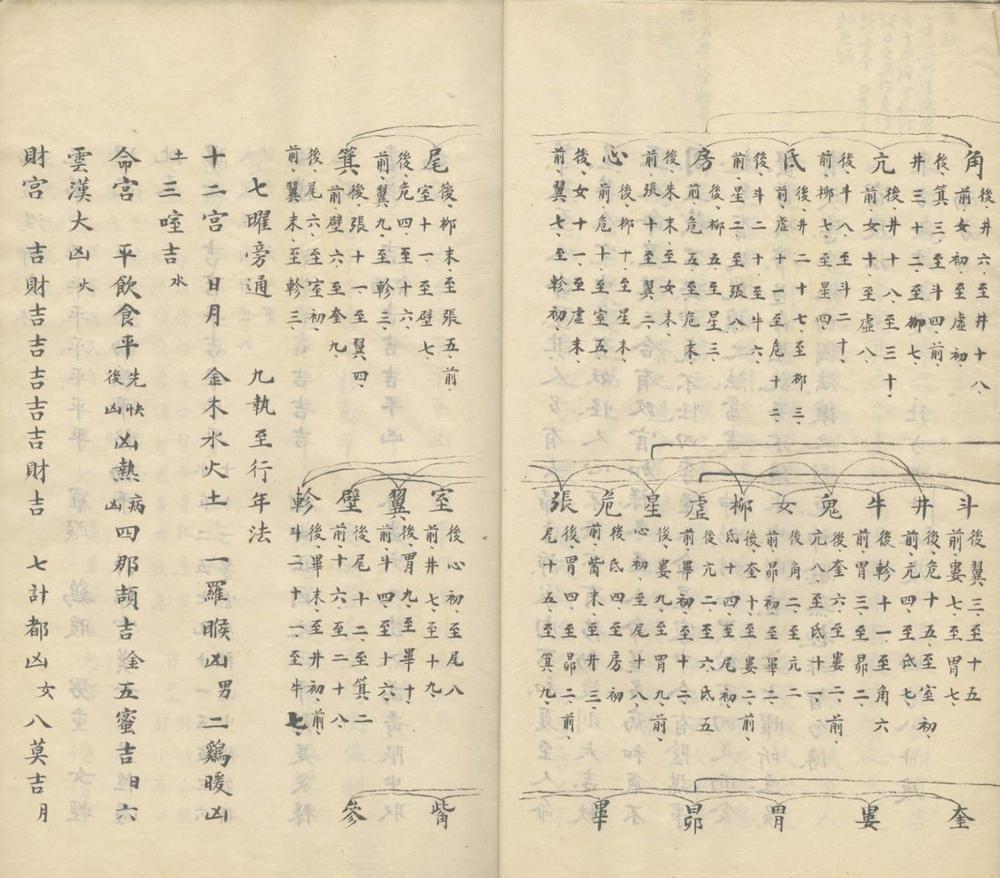 角 後、井六、至井十八
前、女初、至虛初、
後、箕三、至斗四、前
井三、十二、至柳七、
亢 後井十八、至三十、
前、女十一、至虛八
後、斗八、至斗二十、
前、柳七、至星四、
氐 後、井二十七、至柳三、
前、虛十、至危十二、
後、斗二十、至牛六、
前、星二、至張八
房 後、柳五、至星三、
前、危五、至危末、
後、牛末、至女末、
前、張十、至翼二、
心 後、柳十、至星末、
前、危十、至室五、
後、女十一、至虛末、
前、翼七、至軫初、
斗 後、翼三、至十五
前、婁七、至胃七、
井 後、危十五、至室初
前、亢四、至氐七、
牛 後、軫十一、至角六
前、婁十三、至昴二、
鬼 後、奎六、至婁二、前
亢八、至氐十一、
女 後、角二、至亢二
前、昴初、至畢二、
柳 後、奎十、至婁二、前
氐十四、至尾初、
虛 後、亢二、至六、氐五
前、畢初、至十二、
星 後、婁九、至胃九、前、
心初、至尾十八、
危 後、氐四、至房初
前、觜末、至井三、
張 後、胃四、至昴二、前、
尾十五、至箕九、
奎
婁
胃
昴
畢
尾 後、柳末、至張五、前、
室十一、至壁七、
後、危四、至十六、
前、翼九、至軫三、
箕 後、張十一、至翼四、
前、壁六、至奎九、
後、尾六、至室初、
前、翼末、至軫三、
室 後、心初、至尾八
前、井七、至十九
翼 後、胃九、至畢十、
前、斗四、至十六、
壁 後、尾十二、至箕二
前、十六、至二十八、
軫 後、畢末、至井初、前、
斗二十二、至牛七、
觜
參
七曜旁通 九執至行年法
十二宮吉宮日月 金木水火土 一羅睺凶男 二鷄暖凶
土 三喹吉水
命宮 平飲食平先快後凶凶熱病凶四那頡吉金五蜜吉日六
雲漢大凶火
財宮 吉財吉吉吉吉吉財吉 七計都凶女八莫吉月